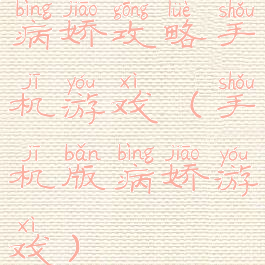 bìng jiāo gōng lüè shǒu
病娇攻略手
jī yóu xì shǒu
机游戏(手
jī bǎn bìng jiāo yóu
机版病娇游
xì
戏)